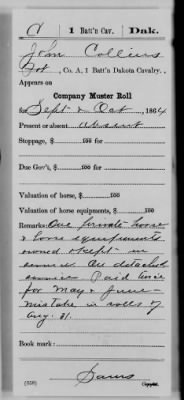 C 1 Batt'n Cav. Dak.
John Collins
Pvt., Co. A, 1 Batt'n Dakota Cavalry.
Appears on
Company Muster Roll
for Sept & Oct, 1864
Present or absent Absent
Stoppage, $ 100 for
Due Gov't, $ 100 for
Valuation of horse, $ 100
Valuation of horse equipments, $ 100
Remarks: One private horse
& horse equipments
owned & kept in
service. On detached
service. Paid twice
for May & June
mistake in rolls of
Aug. 31.
Book mark:
(858)
Copyist.